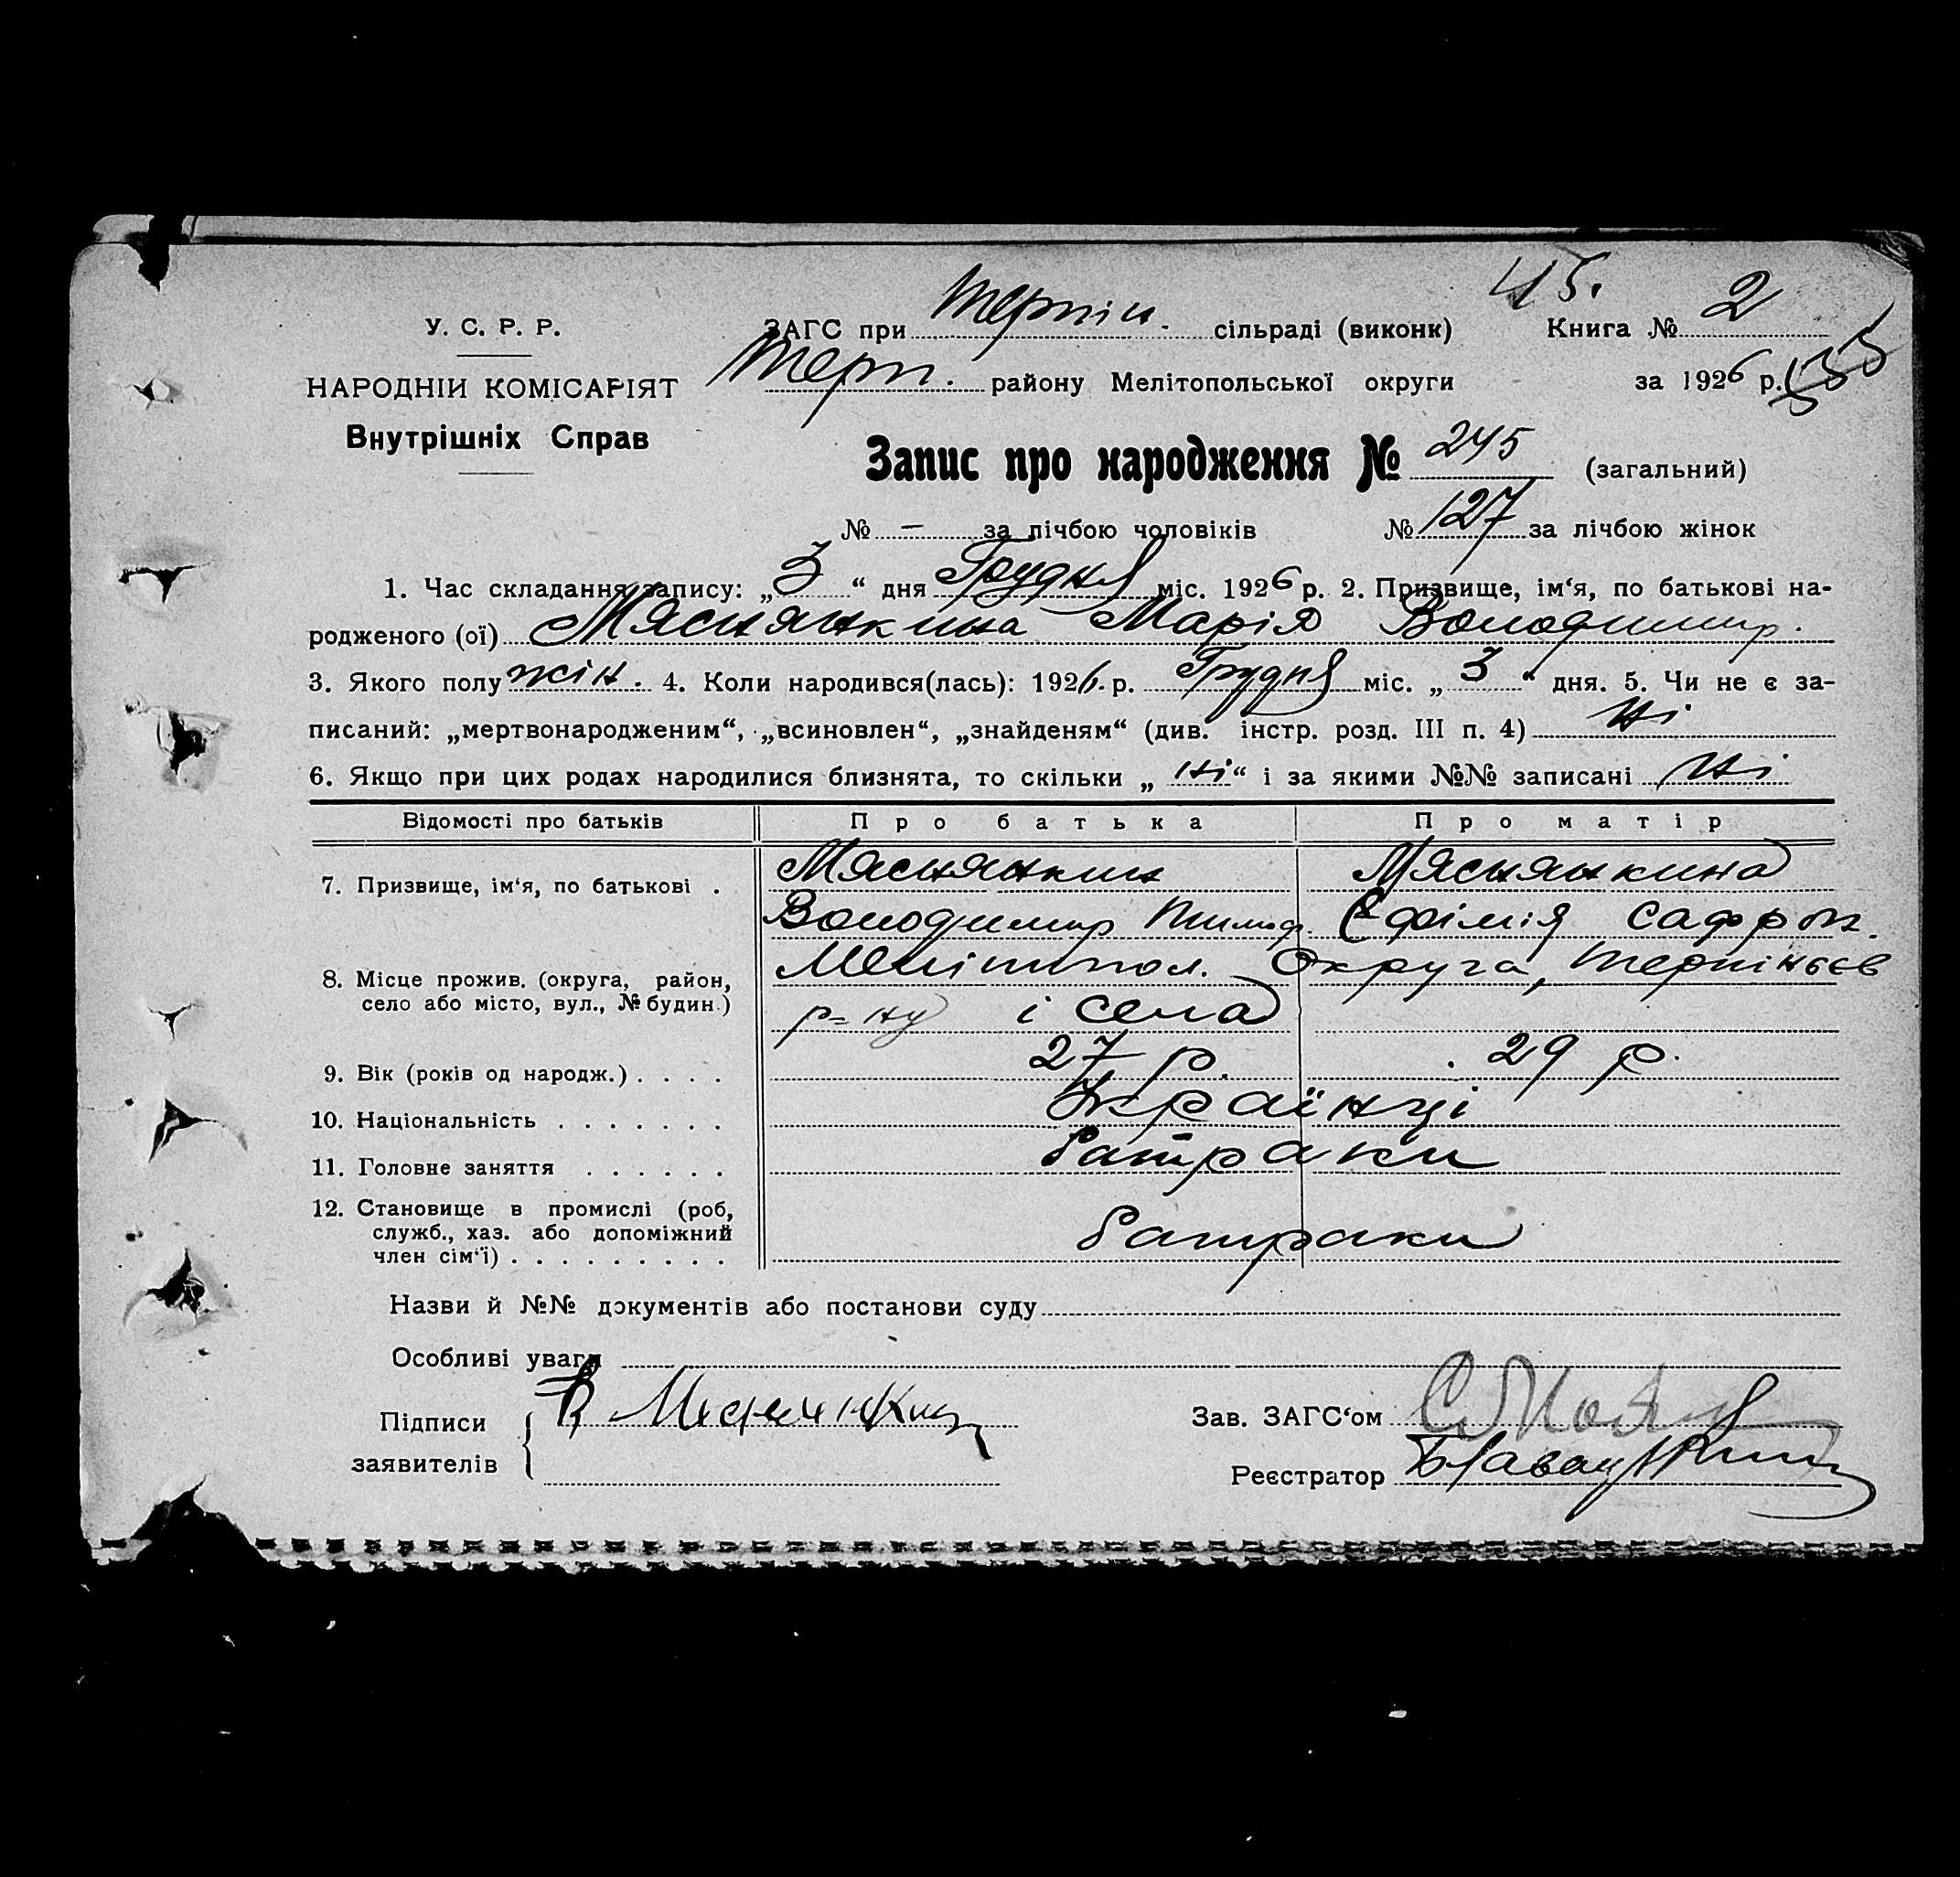 45.
У. С. Р. Р.
НАРОДНІЙ КОМІСАРІЯТ
Внутрішніх Справ
ЗАГС при Терпін. сільраді (виконк) Книга № 2
Терп. району Мелітопольської округи за 1926 р.
Запис про народження № 245 (загальний)
№ — за лічбою чоловіків № 127 за лічбою жінок
1. Час складання запису: „3“ дня Грудня міс. 1926 р. 2. Призвище, ім‘я, по батькові на-
родженого (ої) Мяснянкина Марія Володимир.
3. Якого полу жін. 4. Коли народився(лась): 1926 р. Грудня міс. „3“ дня. 5. Чи не є за-
писаний: „мертвонародженим“, „всиновлен“, „знайденям“ (див. інстр. розд. III п. 4) ні
6. Якщо при цих родах народилися близнята, то скільки „ні“ і за якими №№ записані ні
Відомості про батьків Про батька Про матір
7. Призвище, ім‘я, по батькові . Мяснянкин Мяснянкина
Володимир Тимоф. Єфімія Сафрон.
8. Місце прожив. (округа, район, село або місто, вул., № будин.) Мелітопол. Округа, Терпіньєв
р-ну і села
9. Вік (років од народж.) . . . . 27 р. 29 р.
10. Національність . . . . . . . Українці
11. Головне заняття . . . . . . Батраки
12. Становище в промислі (роб,
служб., хаз. або допоміжний
член сім‘ї) . . . . . . . . . Батраки
Назви й №№ документів або постанови суду
Особливі уваги
Підписи
заявителів
Зав. ЗАГС‘ом
Реєстратор